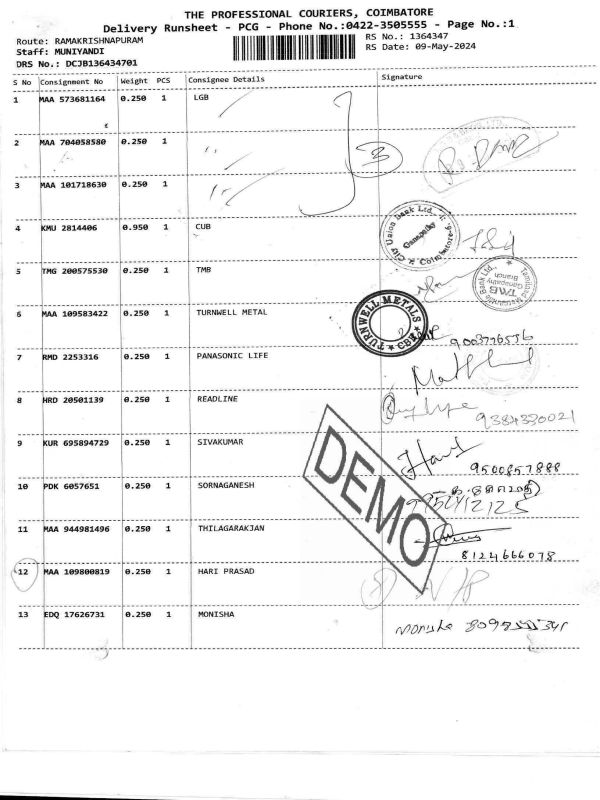 THE PROFESSIONAL COURIERS, COIMBATORE
Delivery Runsheet - PCG - Phone No.:0422-3505555 - Page No.:1
Route: RAMAKRISHNAPURAM
Staff: MUNIYANDI
DRS No.: DCJB136434701
RS No.: 1364347
RS Date: 09-May-2024
S No Consignment No Weight PCS Consignee Details Signature
1 MAA 573681164 0.250 1 LGB
2 MAA 704058580 0.250 1
3 MAA 101718630 0.250 1
3
4 KMU 2814406 0.950 1 CUB
City Union Bank Ltd., Ganapathy Coimbatore
5 TMG 200575530 0.250 1 TMB
Tamilnad Mercantile Bank Ltd., TMB Ganapathy Branch
6 MAA 109583422 0.250 1 TURNWELL METAL
TURNWELL METALS CBE
9003776556
7 RMD 2253316 0.250 1 PANASONIC LIFE
8 HRD 20501139 0.250 1 READLINE
9384330021
9 KUR 695894729 0.250 1 SIVAKUMAR
9500857888
10 PDK 6057651 0.250 1 SORNAGANESH
DEMO
11 MAA 944981496 0.250 1 THILAGARAKJAN
8124666078
12 MAA 109800819 0.250 1 HARI PRASAD
13 EDQ 17626731 0.250 1 MONISHA
Monisha